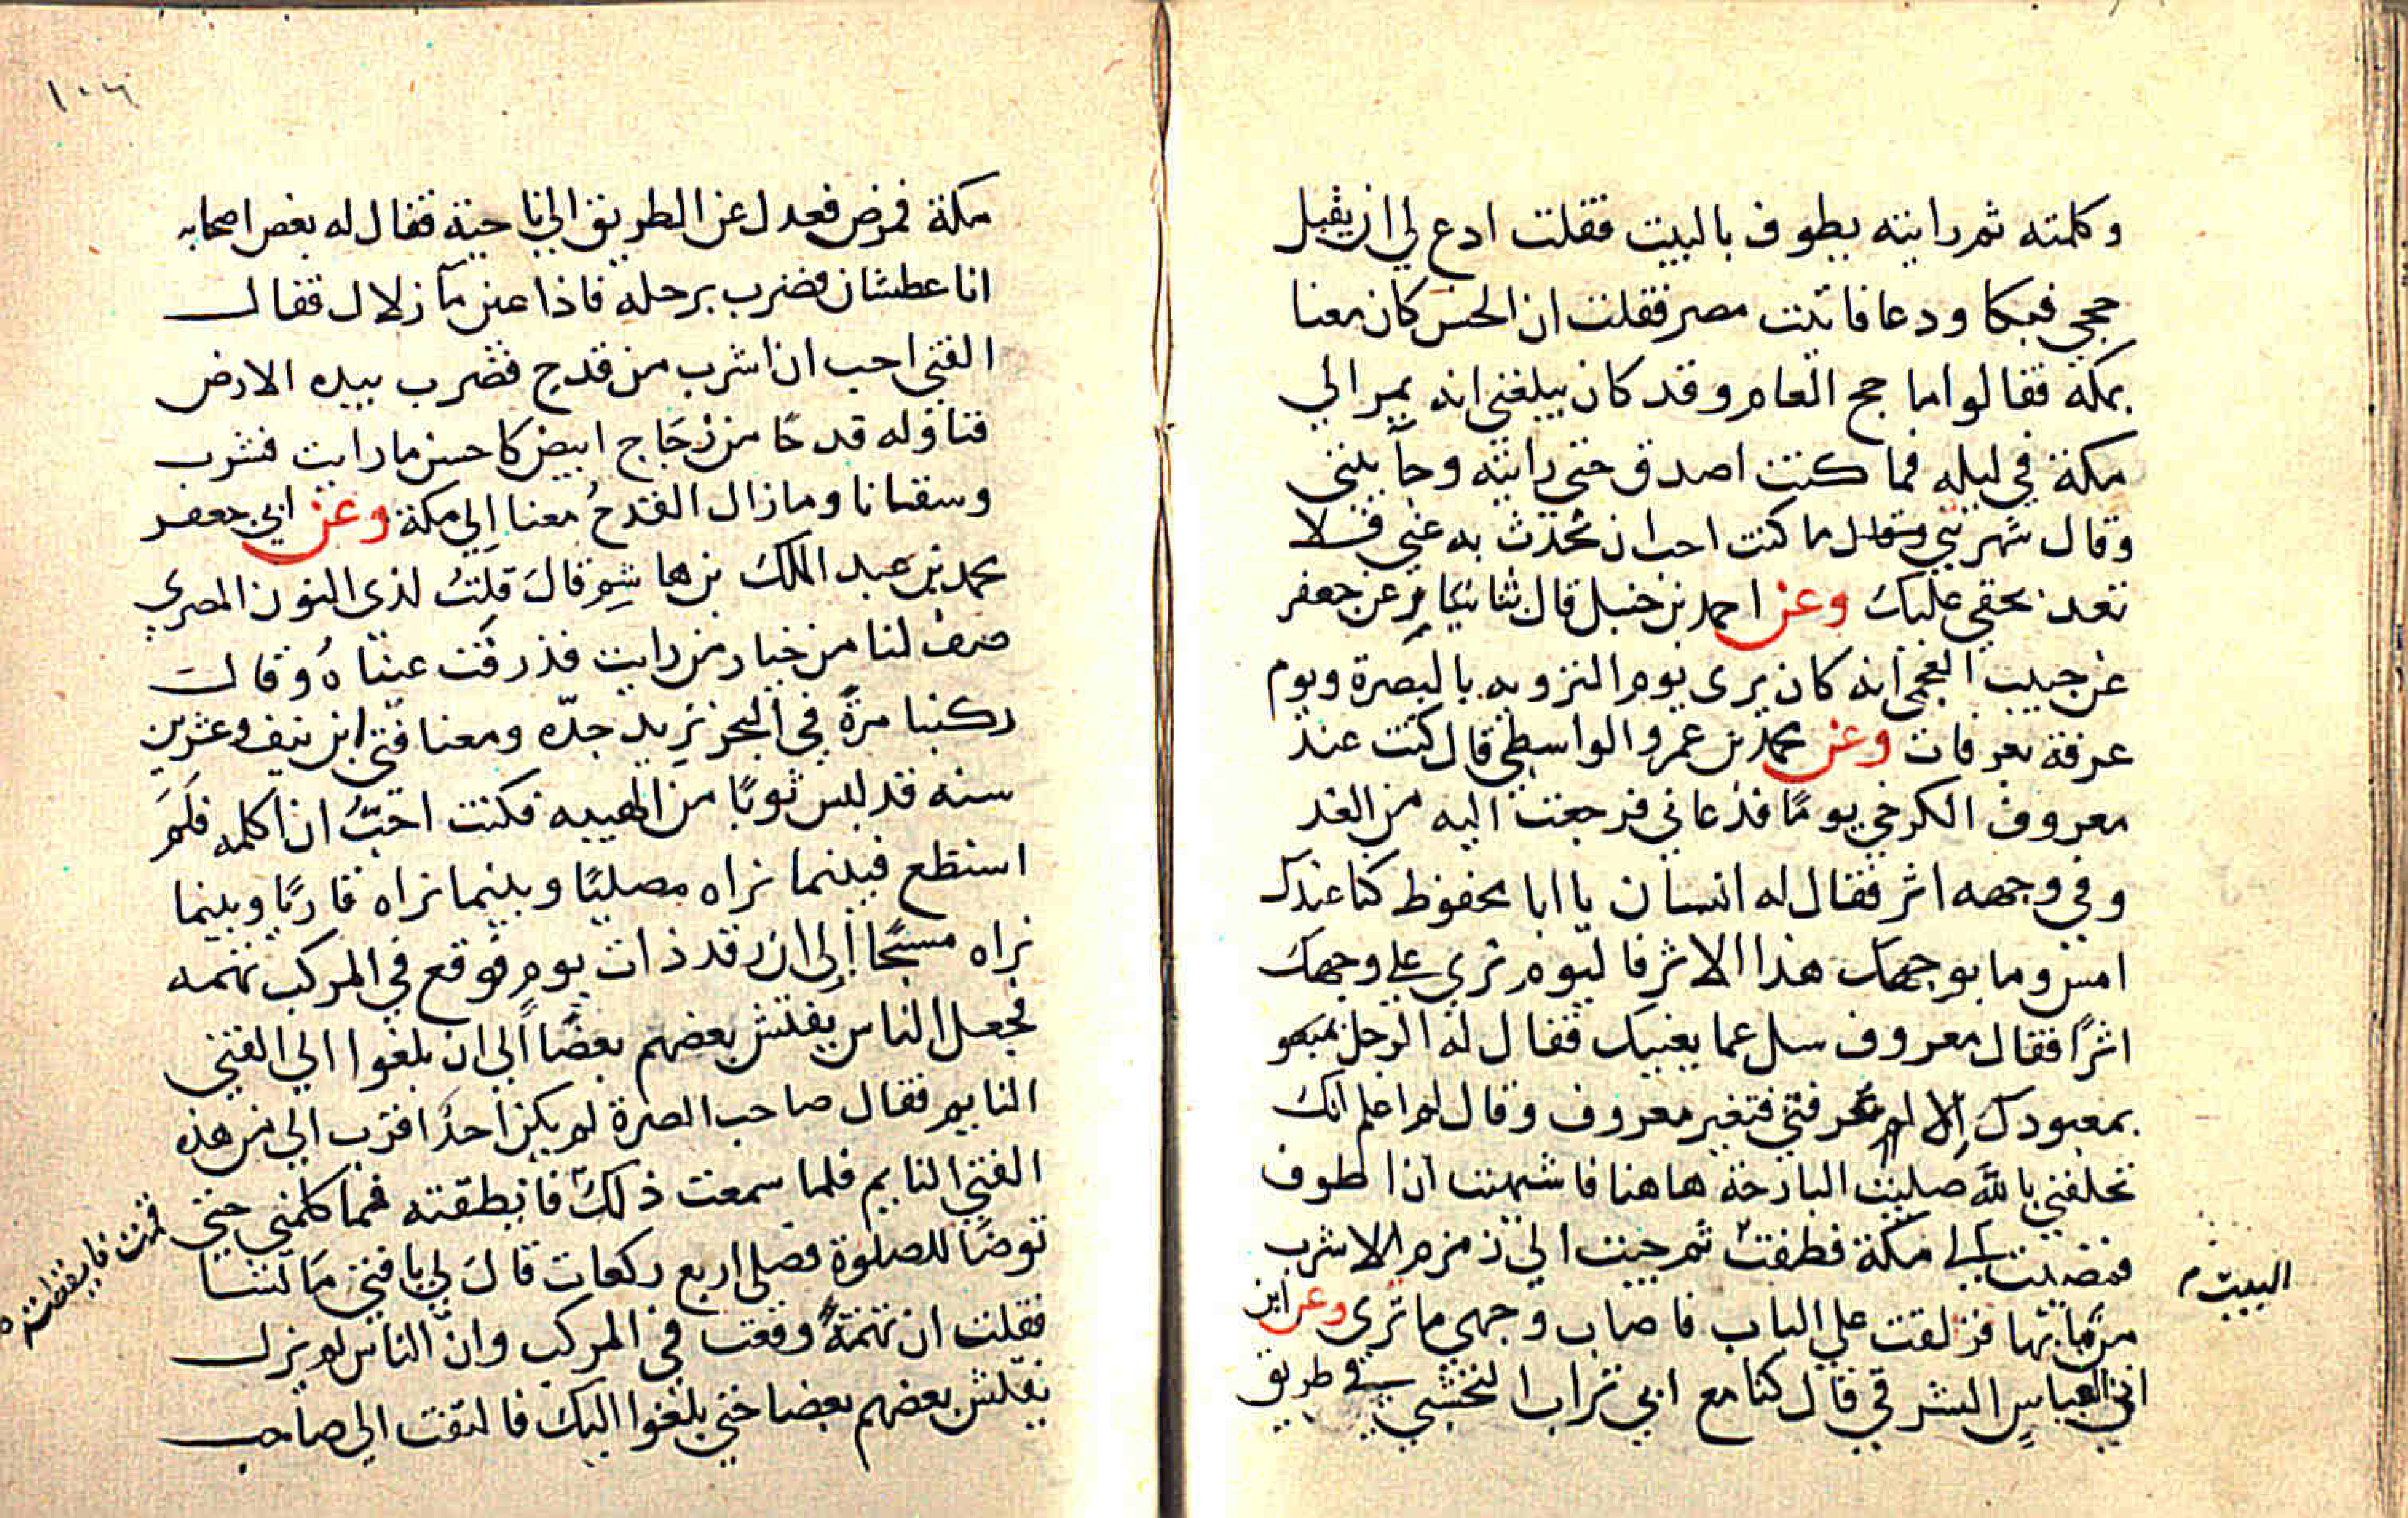 وكلمته ثم رايته يطوف بالبيت فقلت ادع لي ان يقبل
حجي فبكا ودعا فاتيت مصر فقلت ان الحسن كان معنا
بمكة فقالوا ما حج العام وقد كان يبلغني انه يمر الي
مكة في ليله فما كنت اصدق حتي رايته وجآ بيتي
وقال شهرتني ما كنت احب ان تحدث به عني فلا
تعد بحقي عليك وعن احمد بن حنبل قال ثنا عن جعفر
عن حبيب العجمي انه كان يري يوم التروية بالبصرة ويوم
عرفة بعرفات وعن محمد بن عمرو الواسطي قال كنت عند
معروف الكرخي يومًا فدعاني فرجعت اليه من الغد
وفي وجهه اثر فقال له انسان يا ابا محفوظ كنا عندك
امس وما بوجهك هذا الاثر فاليوم نري علي وجهك
اثرًا فقال معروف سل عما يعنيك فقال له الرجل
بمعبودك إلا فتغير معروف وقال لم اعلم انك
تحلفني بالله صليت البارحة هاهنا فاشتهيت ان اطوف
البيت
فمضيت الي مكة فطفت ثم جيت الي زمزم لاشرب
من مآئها فزلقت علي الباب فاصاب وجهي ما تري وعن ابن
ابي العباس الشرقي قال كنا مع ابي تراب النخشبي في طريق
١٠٦
مكة فمرض فعدل عن الطريق الي ناحية فقال له بعض اصحابه
انا عطشان فضرب برجله فاذا عين مآ زلال فقال
الفتي احب ان اشرب من قدح فضرب بيده الارض
فناوله قدحًا من زجاج ابيض كاحسن ما رايت فشرب
وسقانا وما زال القدح معنا إلي مكة وعن ابي جعفر
محمد بن عبد الملك بن هاشم قال قلت لذي النون المصري
صف لنا من خيار من رايت فذرفت عيناه وقال
ركبنا مرةً في البحر نريد جدّه ومعنا فتي ابن نيف وعشرين
سنه قد لبس ثوبًا من الهيبه فكنت احبُّ ان اكلمه فلم
استطع فبينما نراه مصليًا وبينما نراه قاريًا وبينما
نراه مسبحًا إلي ان رقد ذات يوم فوقع في المركب تهمه
فجعل الناس يفتش بعضهم بعضًا الي ان بلغوا الي الفتي
النايم فقال صاحب الصرة لم يكن احدًا اقرب الي من هذه
الفتي النايم فلما سمعت ذلك فايقظته فما كلمني حتي
قمت فايقظته
توضأ للصلوة فصلي اربع ركعات قال لي يا فتي ما تشا
فقلت ان تهمةً وقعت في المركب وانّ الناس لم يزل
يفتش بعضهم بعضا حتي بلغوا اليك فالتفت الي صاحب